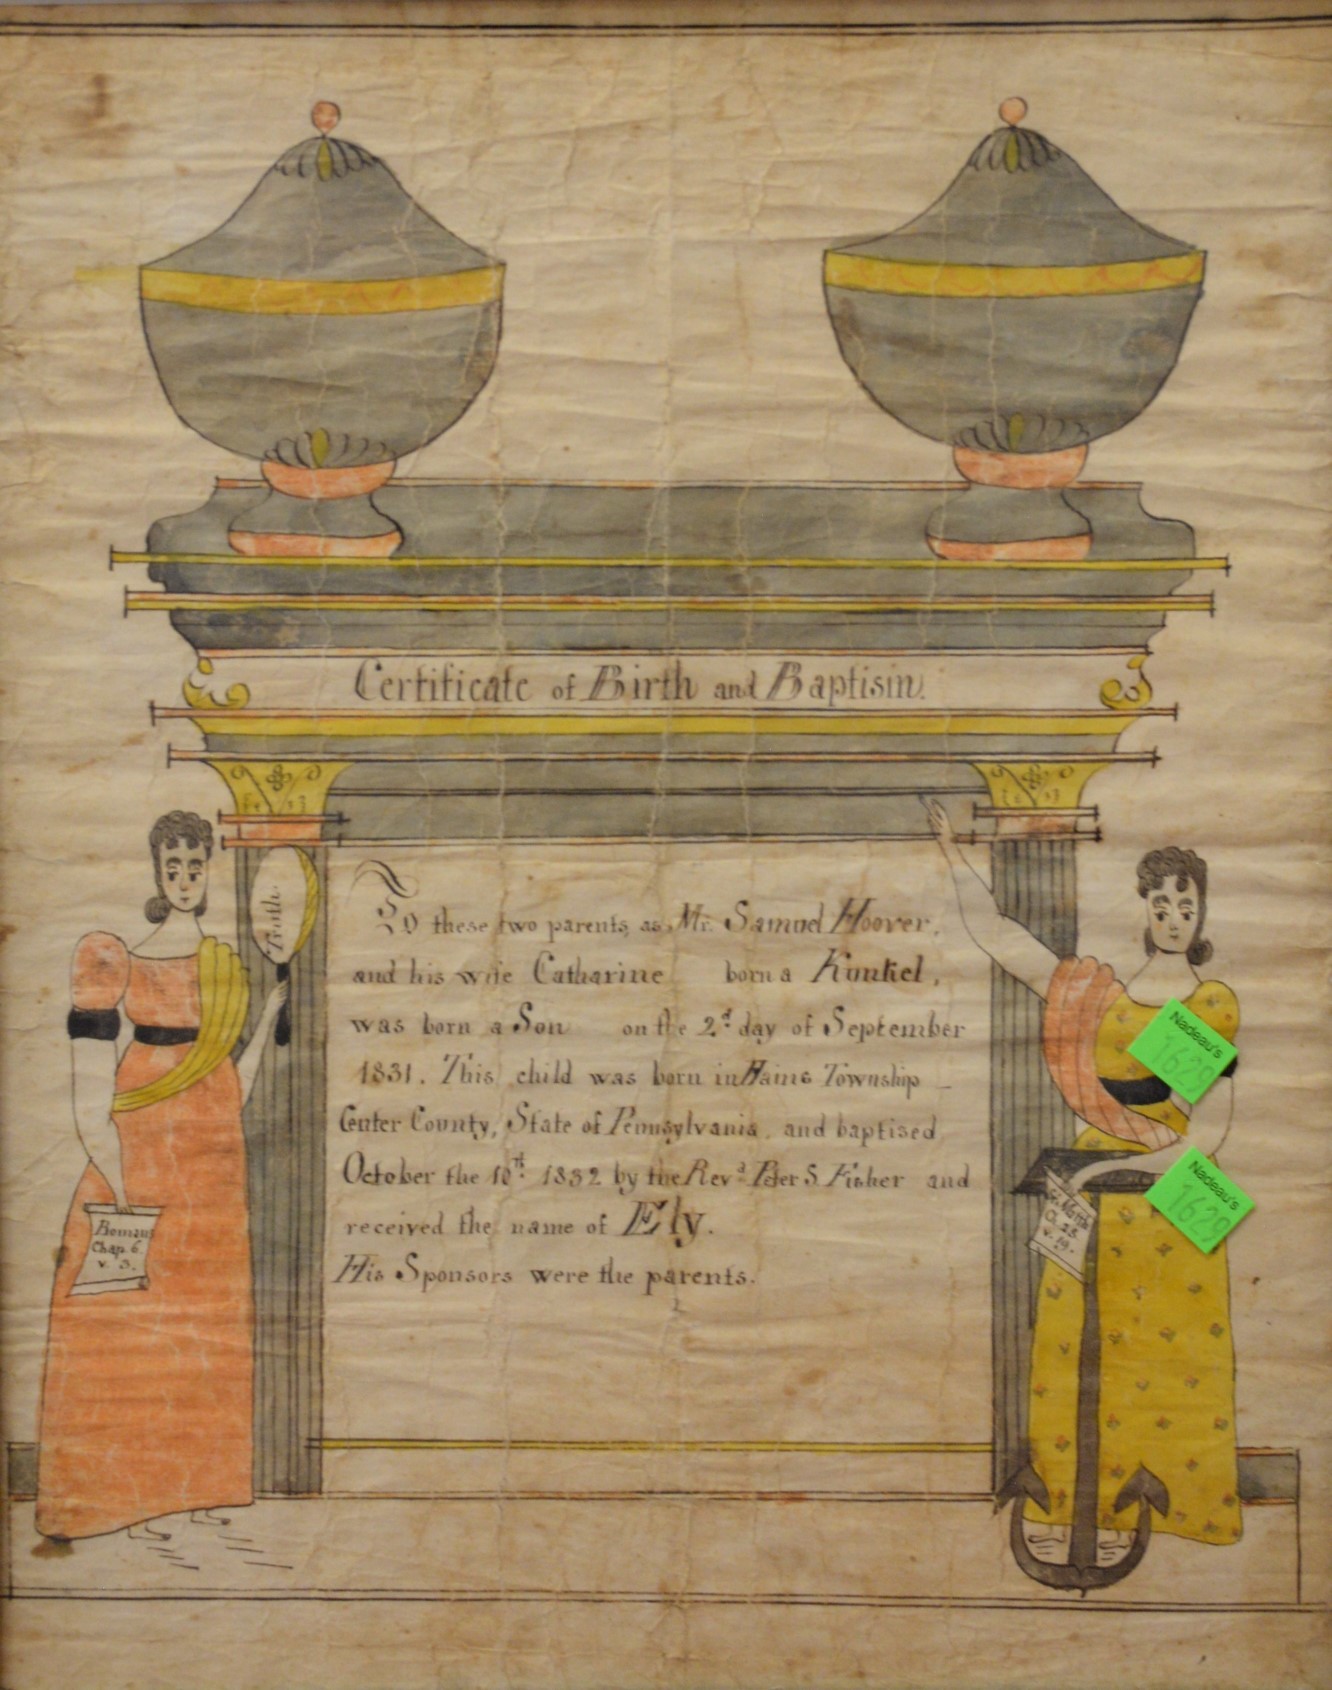 Certificate of Birth and Baptism.
Truth.
To these two parents, as Mr. Samuel Hoover,
and his wife Catharine born a Kunkel,
was born a Son on the 2d day of September
1831. This child was born in Hains Township
Center County, State of Pennsylvania, and baptised
October the 10th 1832 by the Revd Peter S. Fisher and
received the name of Ely.
His Sponsors were the parents.
Romans
Chap. 6.
v. 3.
St. Matth
Ch. 28.
v. 19.
Nadeau's
1629
Nadeau's
1629